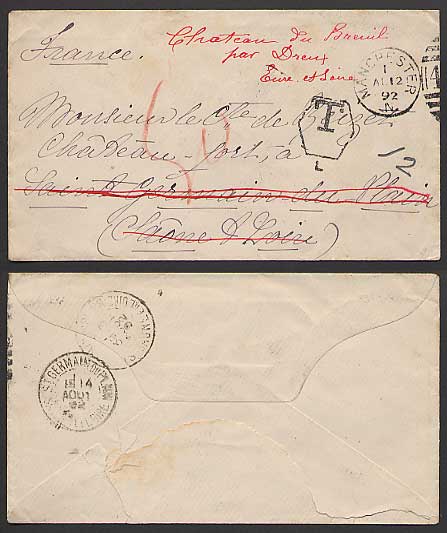 France.
Chateau du Breuil
par Dreux
Eure et Loire
MANCHESTER
1
AU 12
92
N
4
T
L
12
Monsieur le Cte de
Château - Jost, à
Saint Germain du Plain
(Saône & Loire)
ST GERMAIN DU PLAIN
14
AOUT
92